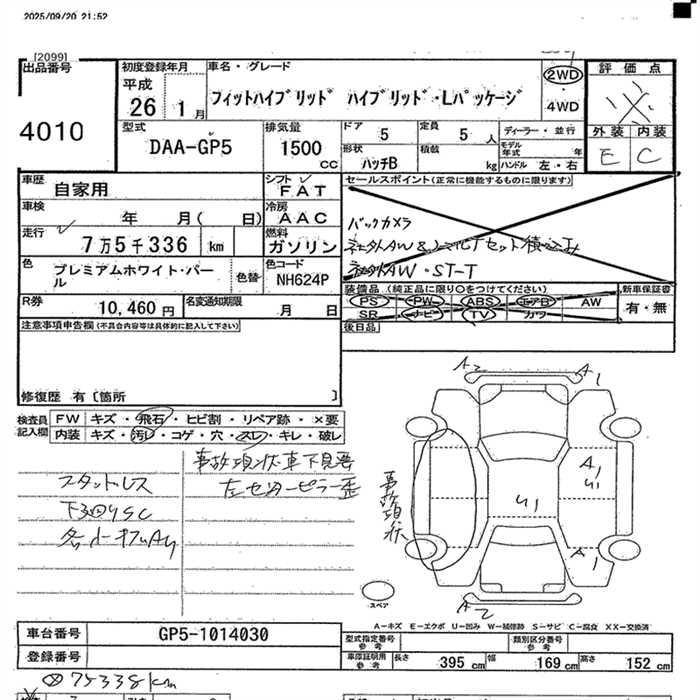 2025/09/20 21:52
[2099]
出品番号
4010
初度登録年月
平成
26 1月
車名・グレード
フィットハイブリッド ハイブリッド・Lパッケージ
2WD
・
4WD
評価点
外装 内装
E C
型式
DAA-GP5
排気量
1500
cc
ドア
5
定員
5 人
形状
ハッチB
積載
kg
ディーラー・並行
モデル年式 年
ハンドル 左・右
車歴
自家用
シフト
FAT
車検
年 月( 日)
冷房
AAC
走行
7万5千336 km
燃料
ガソリン
色
プレミアムホワイト・パール
色替
色コード
NH624P
R券
10,460 円
名変通知期限
月 日
セールスポイント(正常に機能するものに限ります)
バックカメラ
社外AW・ST-T
装備品(純正品に限り○をつけてください)
PS PW ABS エアB AW
SR ナビ TV カワ
新車保証書
有・無
後日品
注意事項申告欄(不具合内容等は具体的に記入して下さい)
修復歴 有〔箇所 〕
検査員記入欄
FW キズ・飛石・ヒビ割・リペア跡・×要
内装 キズ・汚レ・コゲ・穴・スレ・キレ・破レ
スタットレス
下回りSC
事故現状車下見要
左センターピラー歪
事故現状
A2
A1
A1
U1
U1
A1
A2
スペア
A－キズ E－エクボ U－凹み W－補修跡 S－サビ C－腐食 XX－交換済
車台番号
GP5-1014030
登録番号
型式指定番号
参考
類別区分番号
参考
車庫証明用
参考
長さ 395 cm 幅 169 cm 高さ 152 cm
75338km